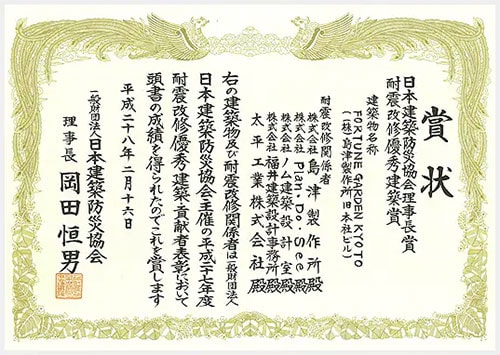 賞状
日本建築防災協会理事長賞
耐震改修優秀建築賞
建築物名称
FORTUNE GARDEN KYOTO
(（株）島津製作所旧本社ビル)
耐震改修関係者
株式会社 島津製作所殿
株式会社 Plan・Do・See殿
株式会社 ノム建築設計室殿
株式会社 福井建築設計事務所殿
太平工業株式会社殿
右の建築物及び耐震改修関係者は一般財団法人
日本建築防災協会主催の平成二十七年度
耐震改修優秀建築・貢献者表彰において
頭書の成績を得られたのでこれを賞します
平成二十八年二月十六日
一般財団法人日本建築防災協会
理事長 岡田恒男